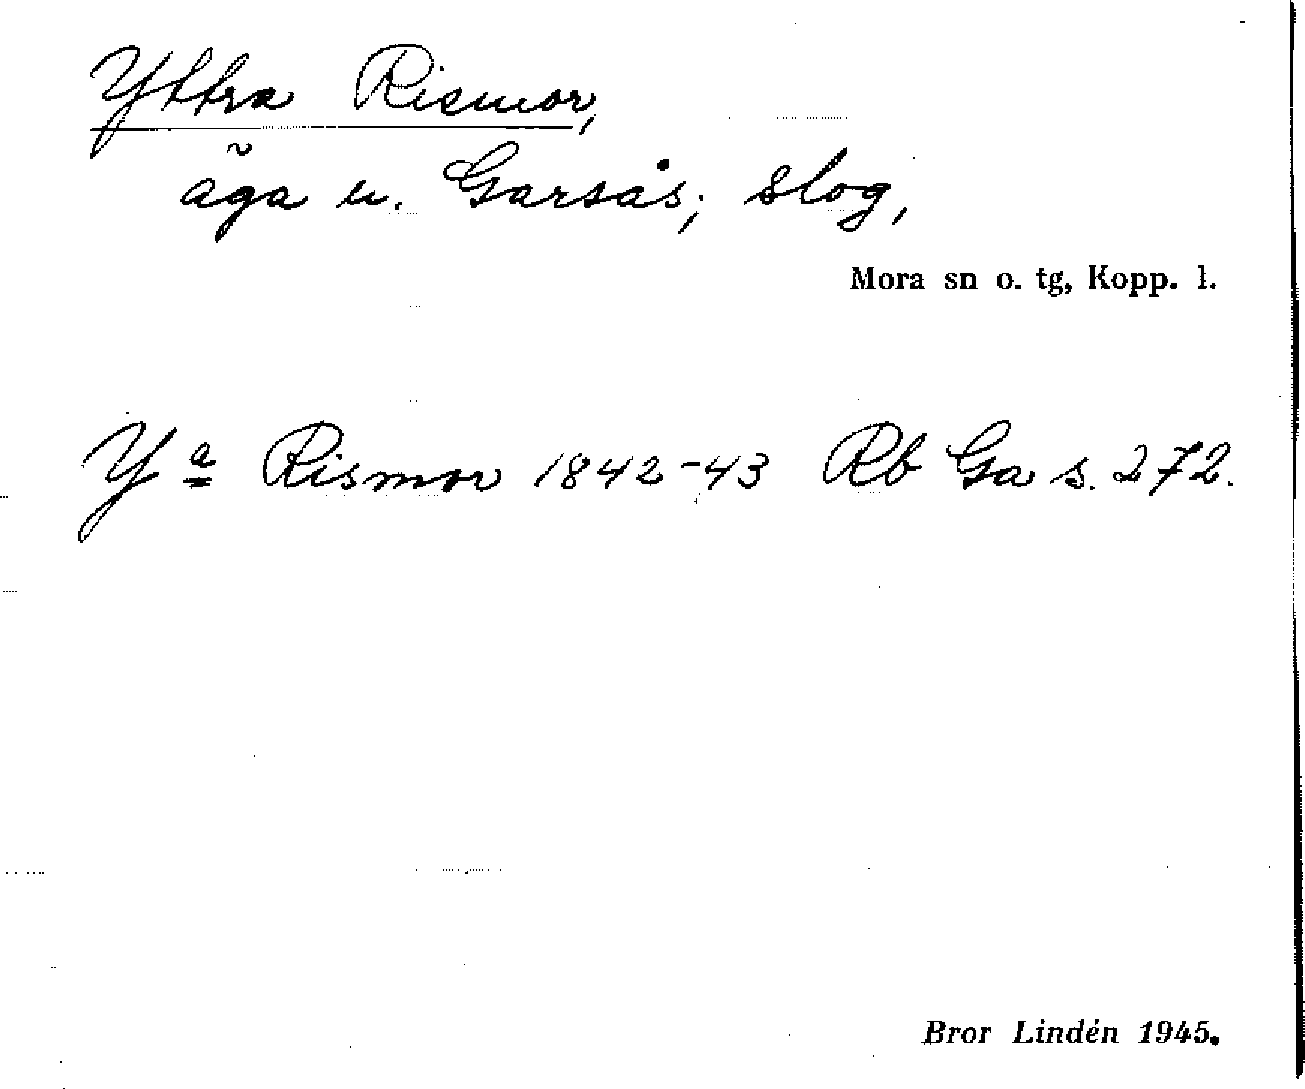 Yttra Rismor,
äga u. Garsås; slog,
Mora sn o. tg, Kopp. l.
Yª Rismor 1842-43 Rb Ga s. 272.
Bror Lindén 1945.